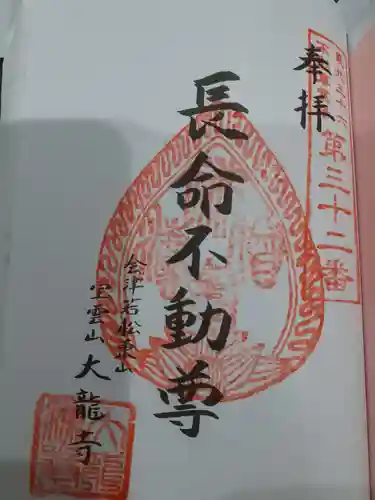 奉拝
第三十二番
長命不動尊
会津若松東山
宝雲山
大龍寺